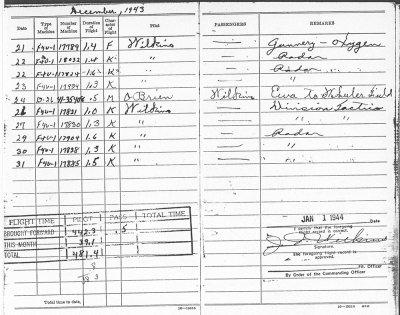 December, 1943
Date Type of Machine Number of Machine Duration of Flight Character of Flight Pilot PASSENGERS REMARKS
21 F4U-1 17789 1.4 F Wilkins — Gunnery - Oxygen
22 F4U-1 18032 1.4 K " — Radar
22 F4U-1 17824 1.6 K " — Radar
23 F4U-1 1.3 K " — "
24 .5 M O'Brien Wilkins Ewa to Wheeler Field
26 F4U-1 17821 1.0 K Wilkins — Division Tactics
27 F4U-1 17830 1.3 K " — "
29 F4U-1 17904 1.6 K " — Radar
30 F4U-1 17828 1.3 K " — "
31 F4U-1 17885 1.5 K " — "
FLIGHT TIME PILOT PASS TOTAL TIME
BROUGHT FORWARD 442.3 .5
THIS MONTH 39.1
TOTAL 481.4
Total time to date,
JAN 1 1944 Date
I certify that the foregoing flight record is correct.
J. J. Wilkins
Signature.
The foregoing flight record is approved.
By Order of the Commanding Officer